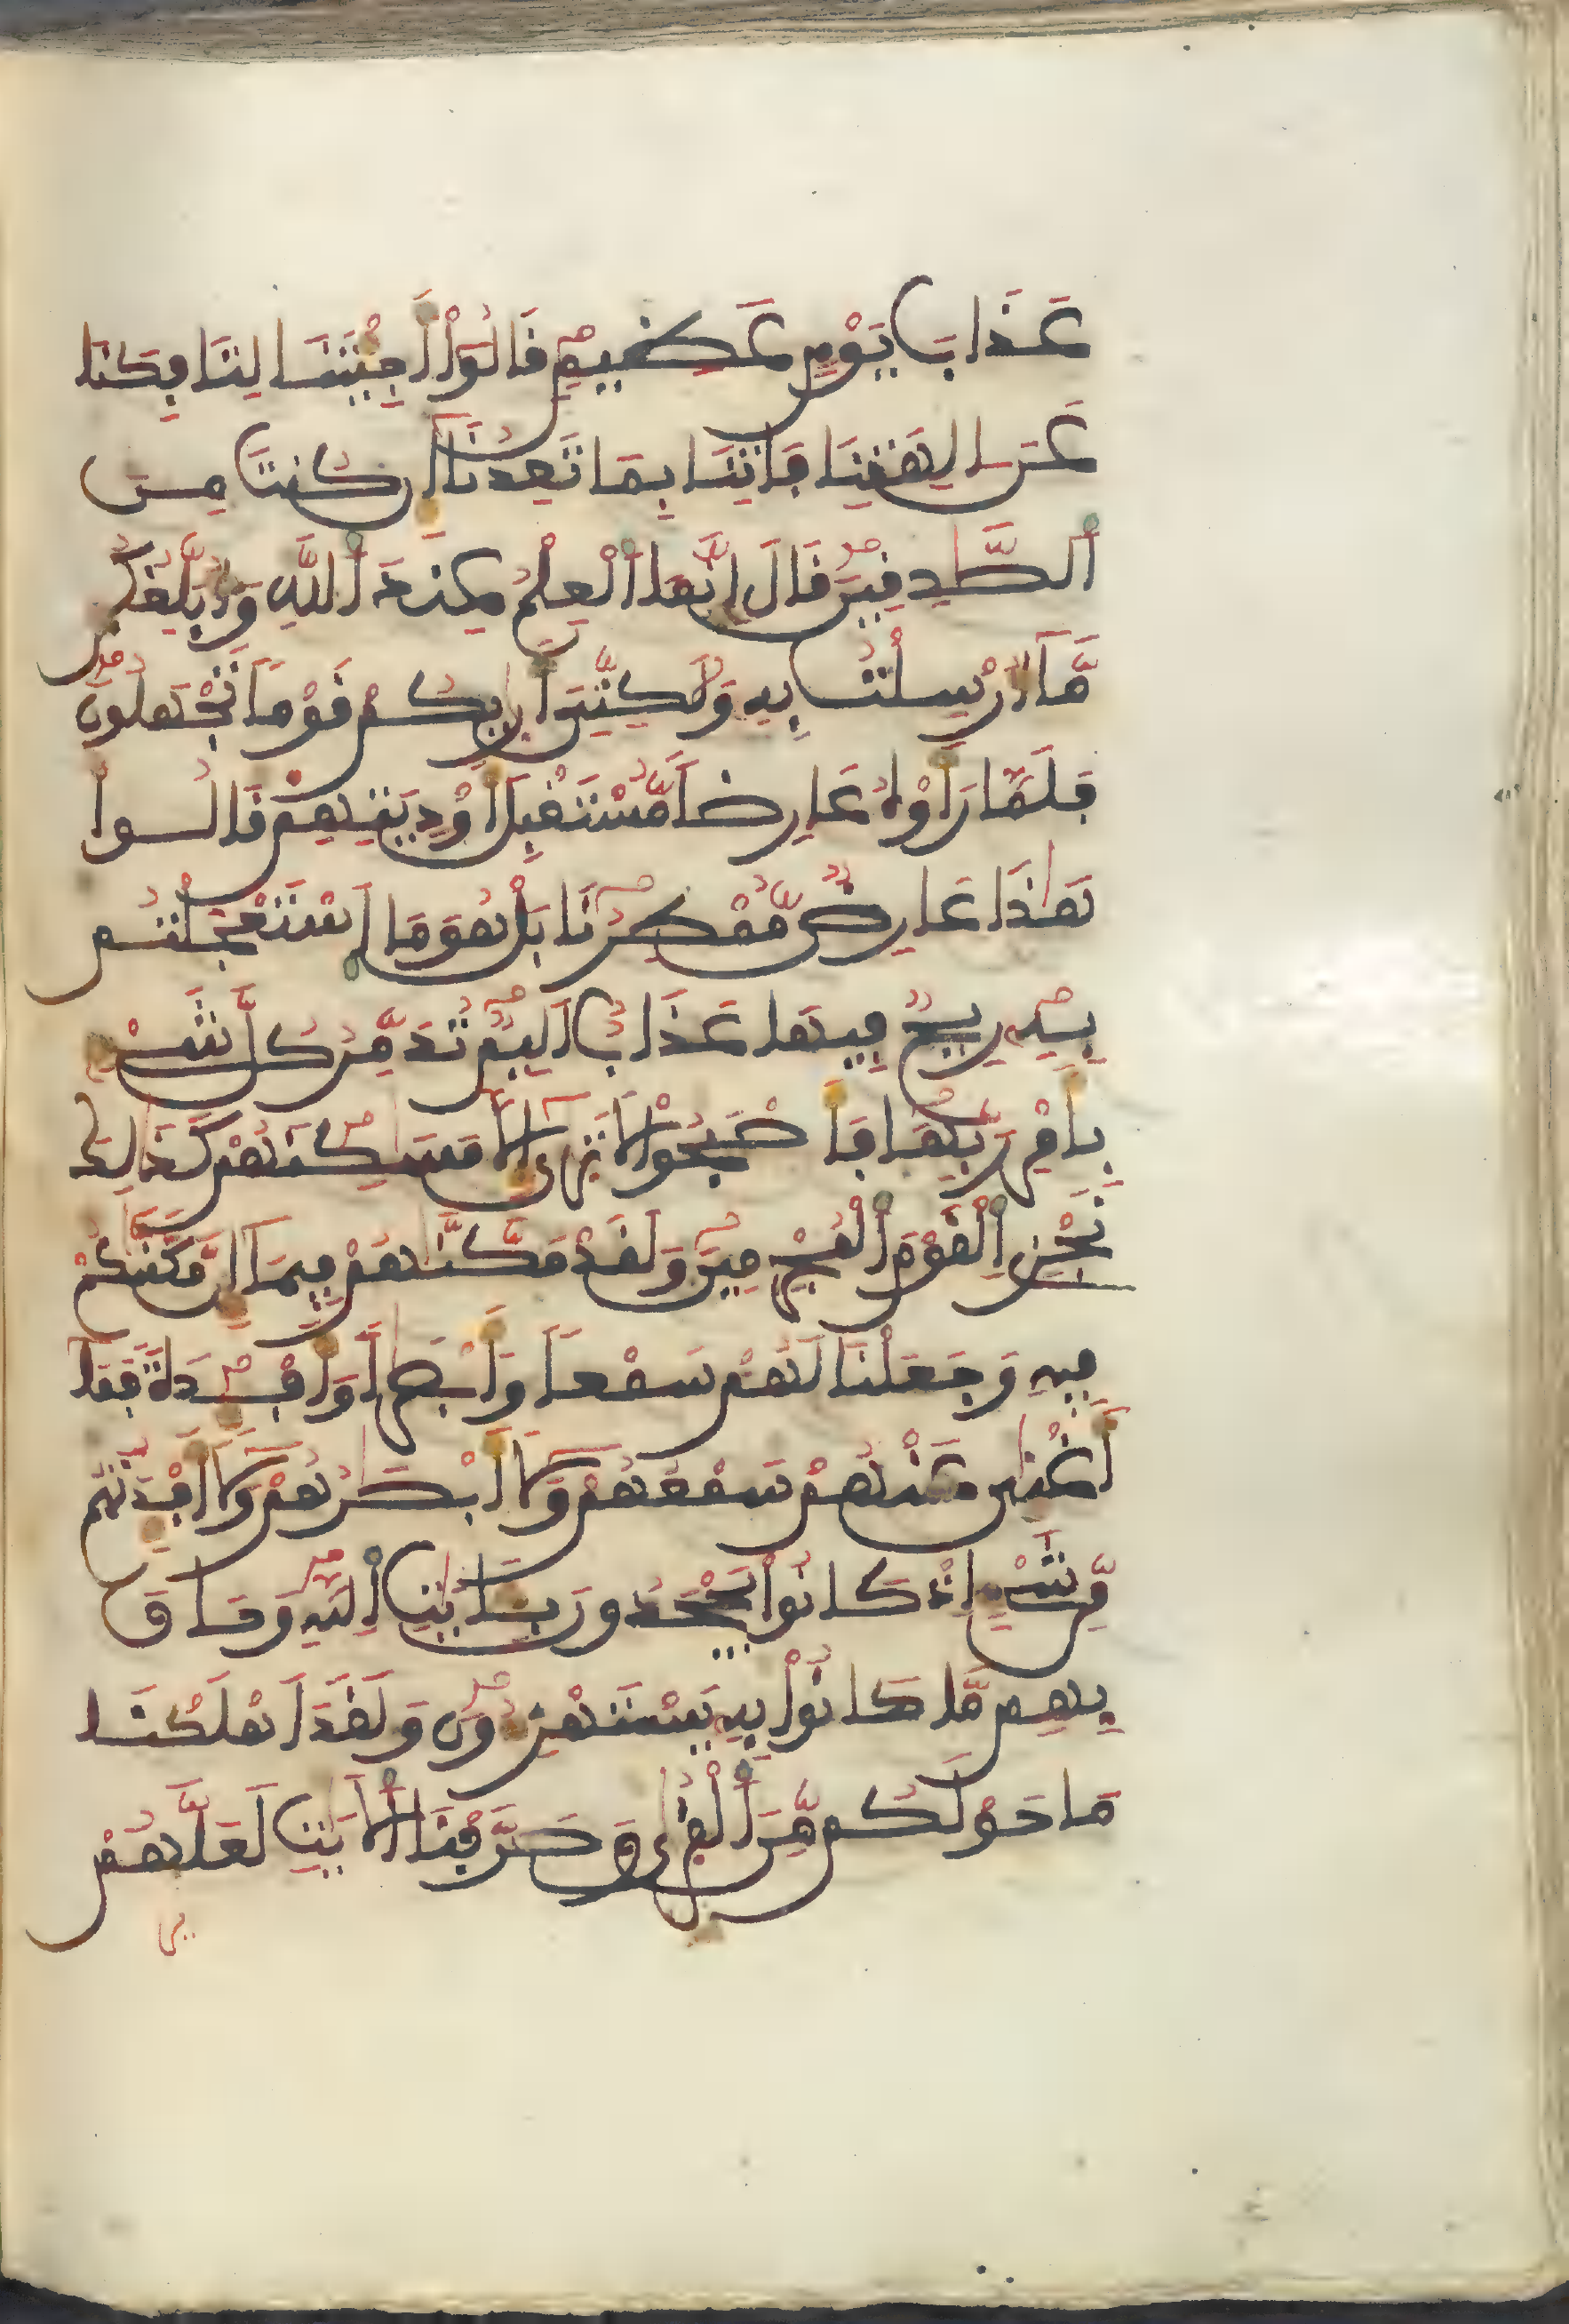 عَذَابَ يَوْمٍ عَظِيمٍ قَالُوٓاْ أَجِئْتَنَا لِتَافِكَنَا
عَنَ اٰلِهَتِنَا فَاتِنَا بِمَا تَعِدُنَآ إِن كُنتَ مِنَ
اَ۬لصَّٰدِقِينَ قَالَ إِنَّمَا اَ۬لْعِلْمُ عِندَ اَ۬للَّهِ وَأُبَلِّغُكُم
مَّآ أُرْسِلْتُ بِهِۦ وَلَٰكِنِّيَ أَر۪ىٰكُمْ قَوْماً تَجْهَلُونَ
فَلَمَّا رَأَوْهُ عَارِضاً مُّسْتَقْبِلَ أَوْدِيَتِهِمْ قَالُواْ
هَٰذَا عَارِضٌ مُّمْطِرُنَا بَلْ هُوَ مَا اَ۪سْتَعْجَلْتُم
بِهِۦ رِيحٌ فِيهَا عَذَابٌ اَلِيمٌ تُدَمِّرُ كُلَّ شَےْءِۢ
بِأَمْرِ رَبِّهَا فَأَصْبَحُواْ لَا تَر۪ىٰٓ إِلَّا مَسَٰكِنَهُمْ كَذَٰلِكَ
نَجْزِے اِ۬لْقَوْمَ اَ۬لْمُجْرِمِينَ وَلَقَدْ مَكَّنَّٰهُمْ فِيمَآ إِن مَّكَّنَّٰكُمْ
فِيهِ وَجَعَلْنَا لَهُمْ سَمْعاً وَأَبْصَٰراً وَأَفْـِٕدَةً فَمَآ
أَغْن۪ىٰ عَنْهُمْ سَمْعُهُمْ وَلَآ أَبْصَٰرُهُمْ وَلَآ أَفْـِٕدَتُهُم
مِّن شَےْءٍ اِذْ كَانُواْ يَجْحَدُونَ بِـَٔايَٰتِ اِ۬للَّهِ وَحَاقَ
بِهِم مَّا كَانُواْ بِهِۦ يَسْتَهْزِءُونَ وَلَقَدَ اَهْلَكْنَا
مَا حَوْلَكُم مِّنَ اَ۬لْقُر۪ىٰ وَصَرَّفْنَا اَ۬لَايَٰتِ لَعَلَّهُمْ